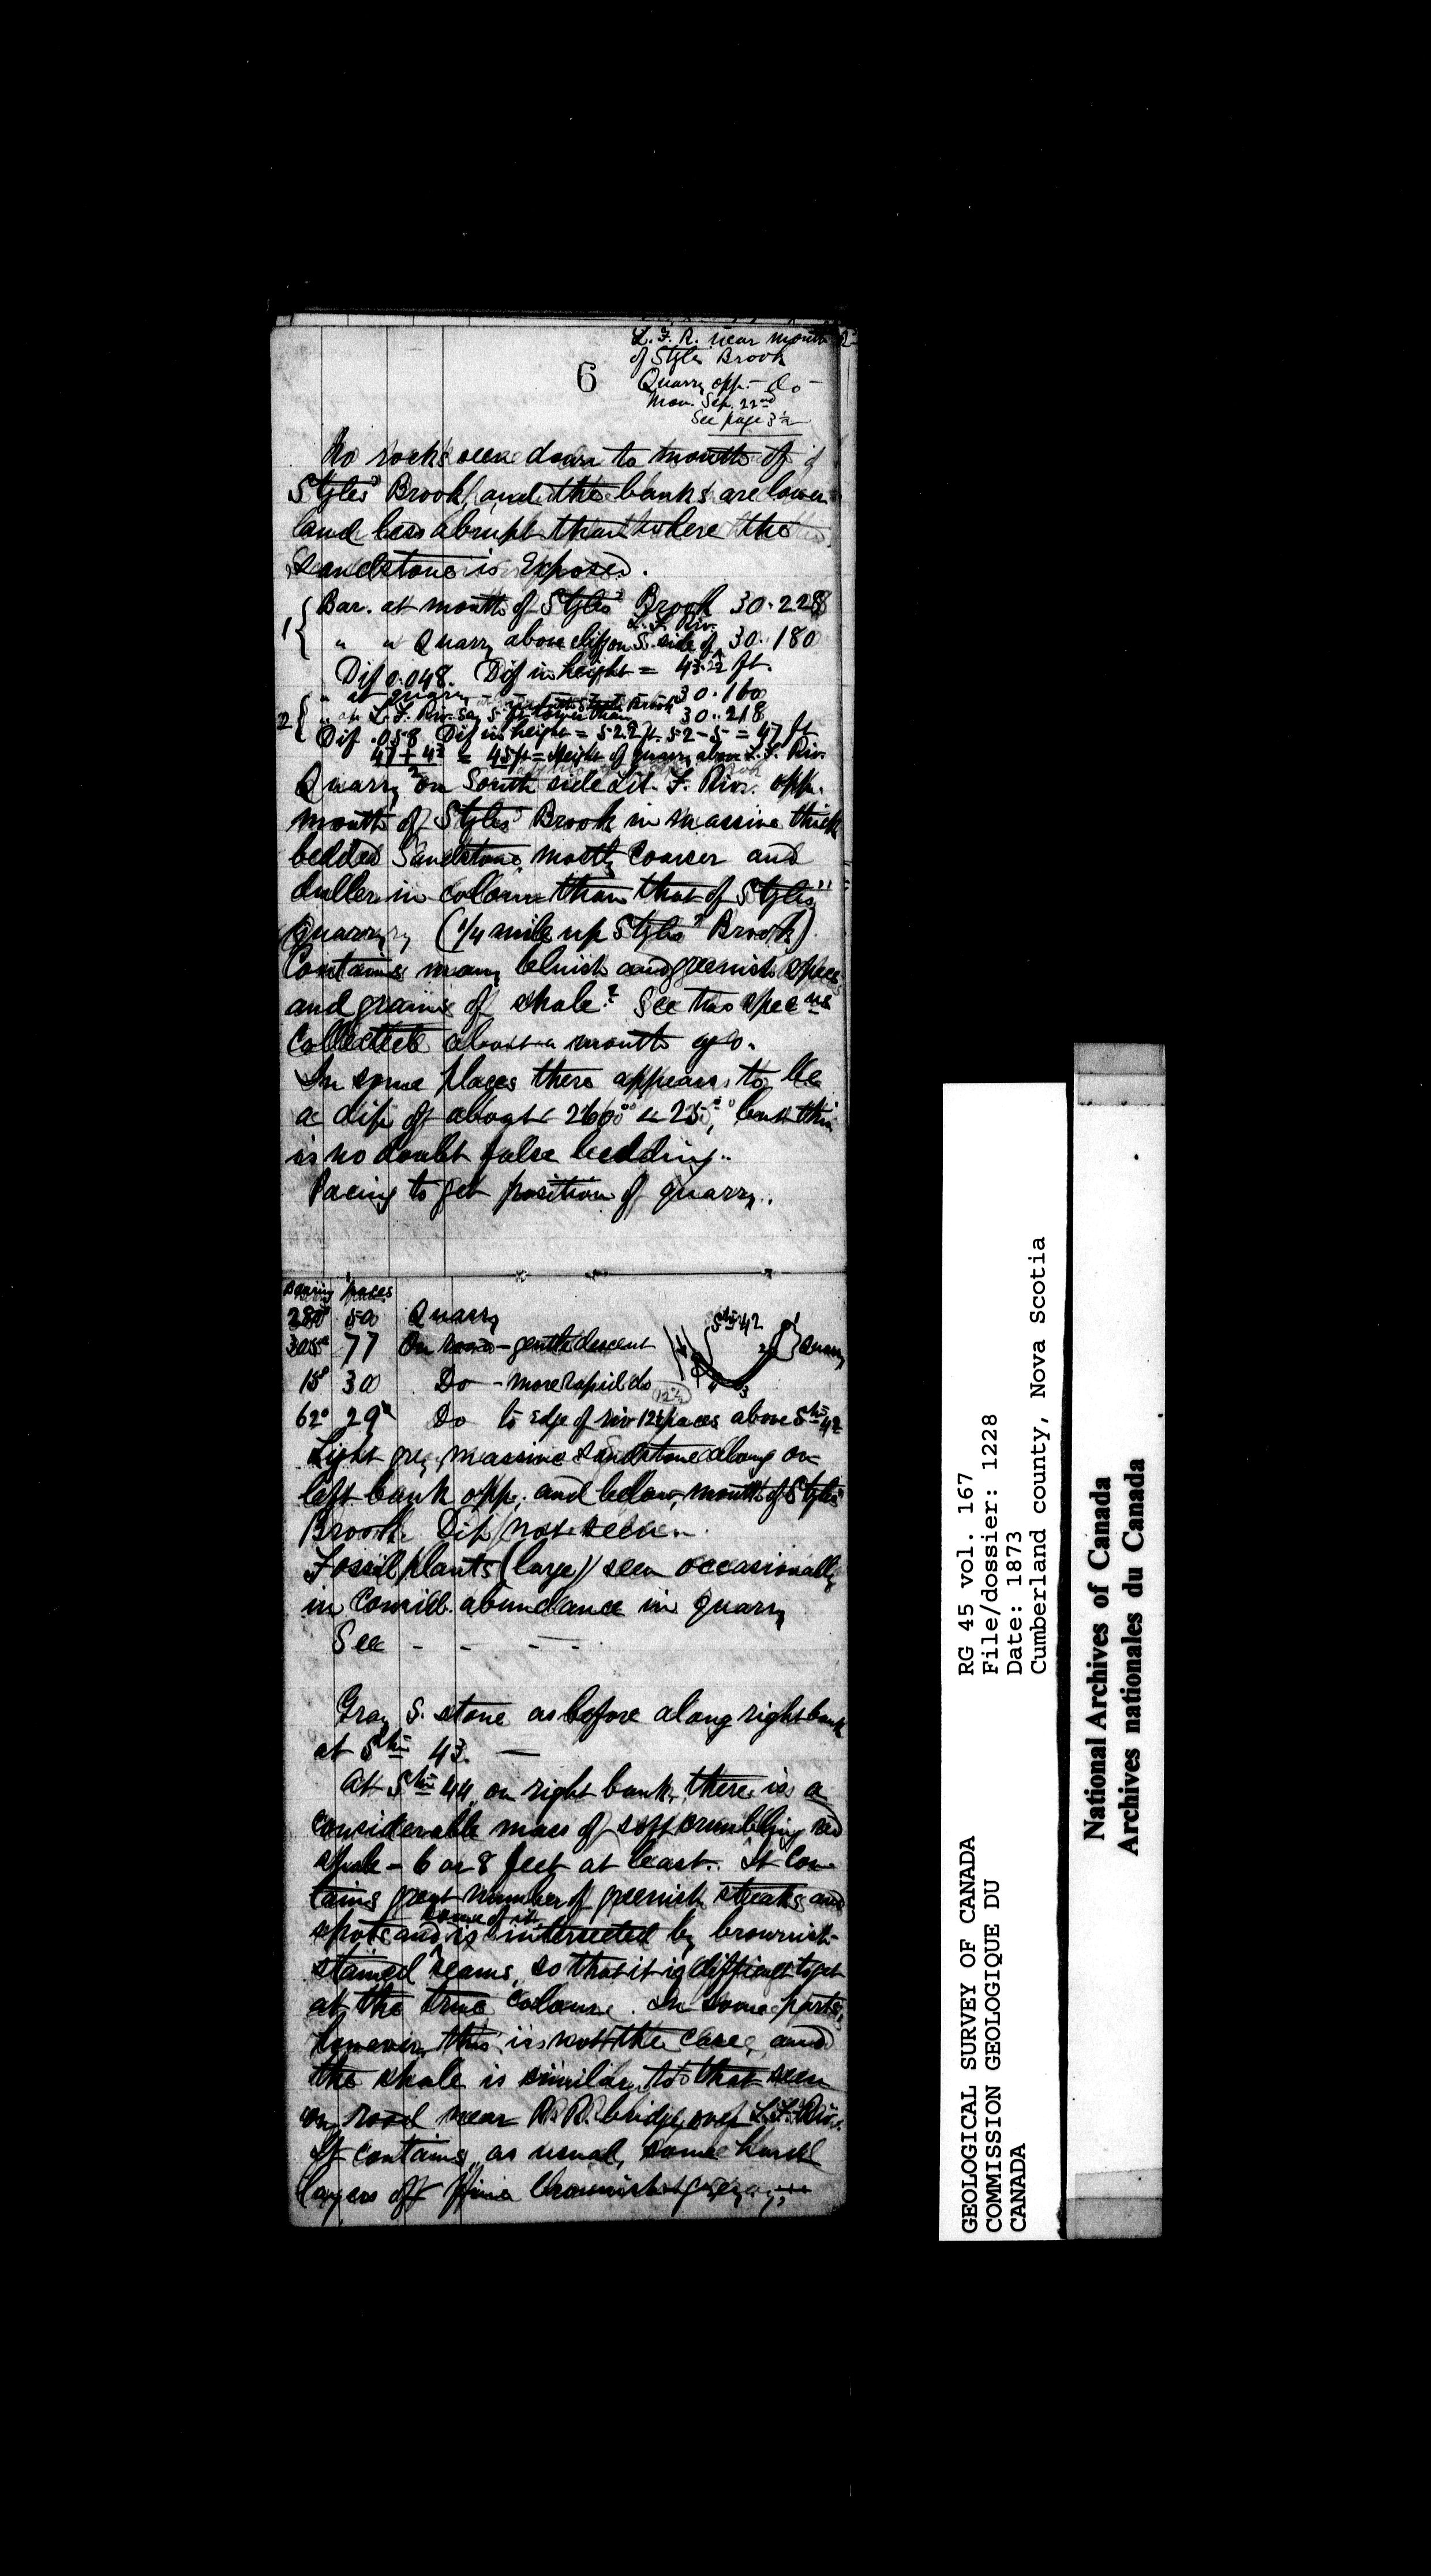 L. F. R. near mouth
of Styles Brook
6
Quarry opp. - Do -
Mon. Sep. 22nd
See page 3½
No rocks seen down to mouth of
Styles' Brook, and the banks are lower
and less abrupt than where the
sandstone is exposed.
1 { Bar. at mouth of Styles' Brook 30.228
" " Quarry above cliff on S. side of L. F. Riv. 30.180
Dif 0.048. Dif in height = 43.22 ft.
2 { " at quarry - - - - - 30.160
" L. F. Riv. say 5 ft lower than mouth Styles Brook 30.218
Dif .058 Dif in height = 52.2 ft. 52-5 = 47 ft
47 + 43 / 2 = 45 ft = Height of quarry above L. F. Riv.
Quarry on South side Lit. F. Riv. opp.
mouth of Styles' Brook in massive thick
bedded Sandstone mostly coarser and
duller in colour than that of Styles'
quarry (1/4 mile up Styles' Brook).
Contains many bluish and greenish specs
and grains of shale? See two specns
collected about a month ago.
In some places there appears to be
a dip of about < 25°, but this
is no doubt false bedding.
Pacing to get position of quarry.
Bearing paces
280° 50 Quarry
305° 77 On road - gentle descent
15° 30 Do - more rapid do
62° 29 Do to edge of riv 12½ paces above Stn 42
Stn 42
Quarry
1
2
3
4
12½
Light grey massive sandstone along on
left bank opp. and below mouth of Styles'
Brook. Dip not seen.
Fossil plants (large) seen occasionally
in consid. abundance in quarry
See - - - -
Gray S. stone as before along right bank
at Stn 43. —
At Stn 44, on right bank, there is a
considerable mass of soft crumbling red
shale - 6 or 8 feet at least. It con
tains great number of greenish streaks and
spots and some of it is intersected by brownish
stained seams, so that it is difficult to get
at the true colour. In some parts,
however, this is not the case, and
the shale is similar to that seen
on road near R. R. bridge over L. F. Riv.
It contains, as usual, some hard
layers of fine brownish grey
RG 45 vol. 167
File/dossier: 1228
Date: 1873
Cumberland county, Nova Scotia
GEOLOGICAL SURVEY OF CANADA
COMMISSION GEOLOGIQUE DU
CANADA
National Archives of Canada
Archives nationales du Canada